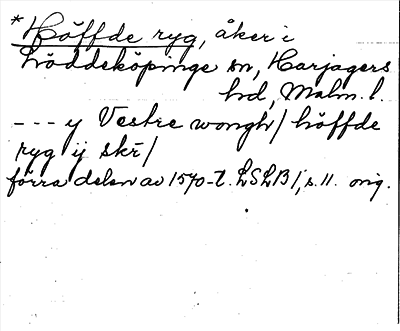 *Höffde ryg, åker i
Löddeköpinge sn, Harjagers
hd, Malm. l.
--- y Vestre wongh/höffde
ryg ij skr/
förra delen av 1570-t. LSLB 1, s. 11. orig.